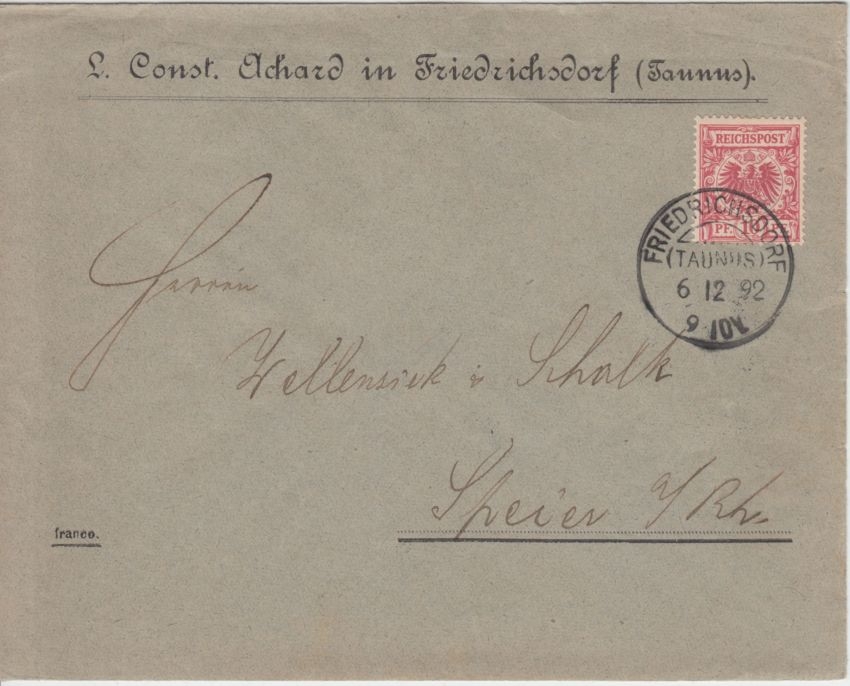 L. Const. Achard in Friedrichsdorf (Taunus).
REICHSPOST
PF. 10 PF.
FRIEDRICHSDORF
(TAUNUS)
6 12 92
9-10V
Herren
Wellensiek & Schalk
Speier a/Rh.
franco.